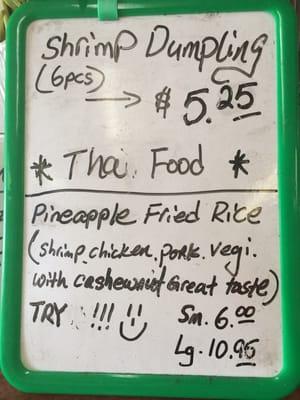 Shrimp Dumpling
(6pcs)
→ $5.25
* Thai Food *
Pineapple Fried Rice
(shrimp.chicken.pork.vegi.
with cashewnut Great taste)
TRY !!!
Sm. 6.00
Lg. 10.95